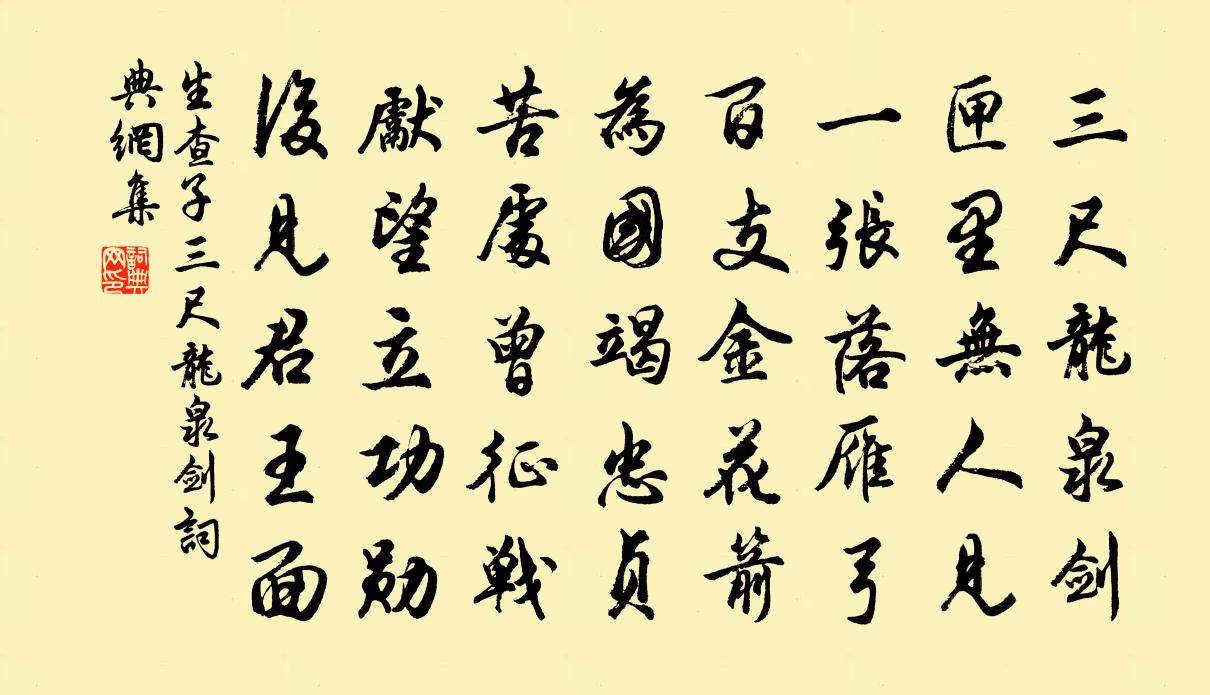 三尺龍泉剑
匣里無人見
一張落雁弓
百支金花箭
為國竭忠貞
苦處曾征戰
獻望立功勋
後見君王面
生查子三尺龍泉剑詞
典網集
詞典
网印